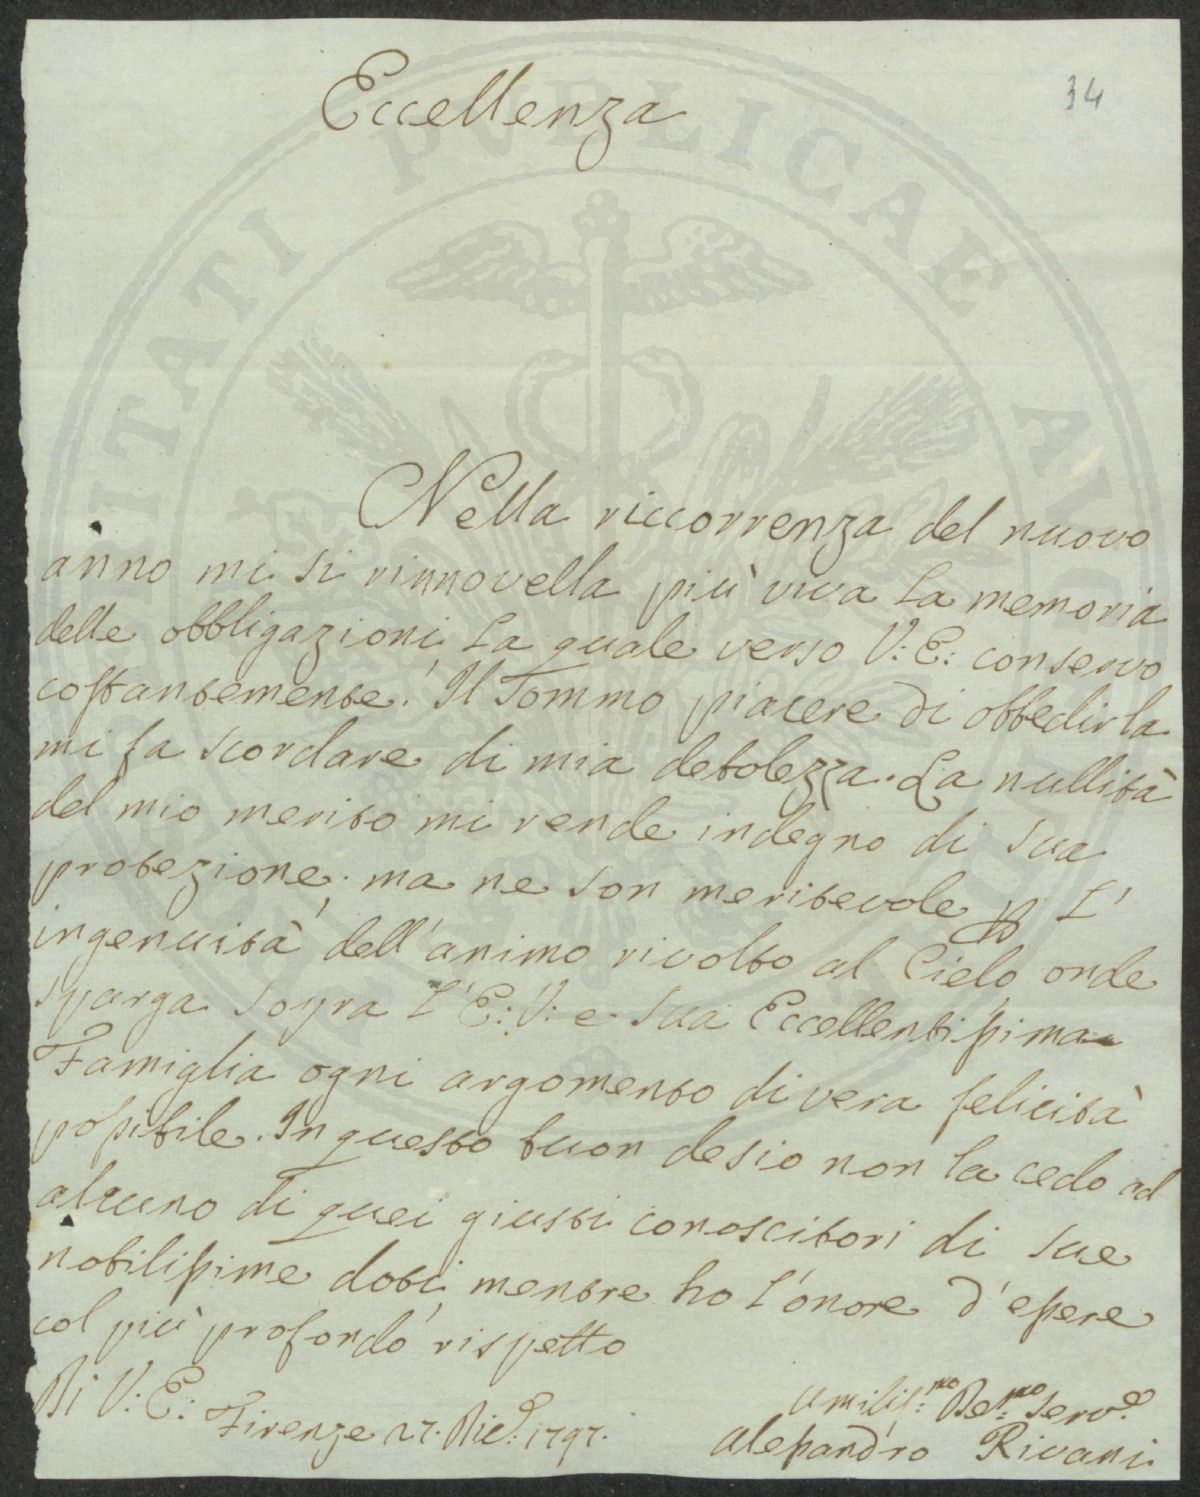 34
Eccellenza
Nella riccorrenza del nuovo
anno mi si rinnovella più viva la memoria
delle obbligazioni la quale verso V: E: conservo
costantemente. Il sommo piacere di obbedirla
mi fa scordare di mia debolezza. La nullità
del mio merito mi rende indegno di sua
protezione, ma ne son meritevole p l'
ingenuità dell'animo rivolto al Cielo onde
sparga sopra l'E: V: e sua Eccellentissima
Famiglia ogni argomento di vera felicità
possibile. In questo buon desio non la cedo ad
alcuno di quei giusti conoscitori di sue
nobilissime doti, mentre ho l'onore d'essere
col più profondo rispetto
Di V: E: Firenze 27. Dic.e 1797.
umilis:mo De:mo serv.e
Alessandro Rivani
PUBLICAE